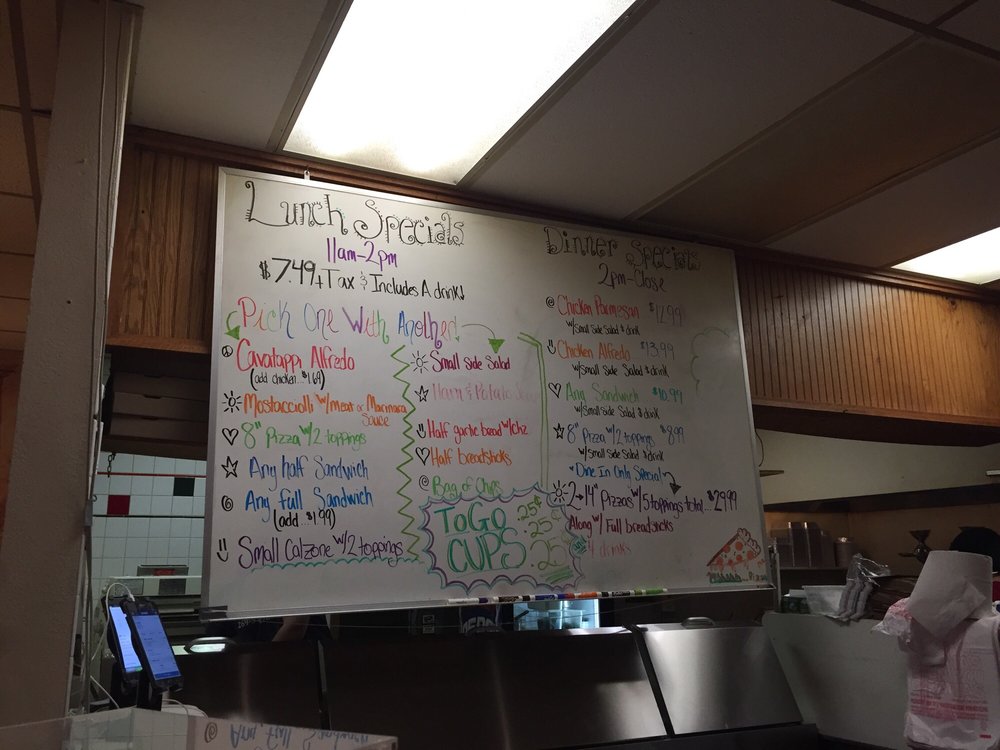 Lunch Specials
11am-2pm
$7.49 + Tax & Includes A drink!
Pick One With Another!
Cavatappi Alfredo
(add chicken...$1.69)
Mostaccioli w/meat or Marinara
Sauce
8" Pizza w/2 toppings
Any half Sandwich
Any full Sandwich
(add...$1.99)
Small Calzone w/2 toppings
Small Side Salad
Ham & Potato
Half garlic bread w/chz
Half breadsticks
Bag of Chips
ToGo
CUPS
25¢
25¢
25¢
Dinner Specials
2pm-Close
Chicken Parmesan $12.99
w/Small Side Salad & drink
Chicken Alfredo $13.99
w/Small Side Salad & drink
Any Sandwich $10.99
w/Small Side Salad & drink
8" Pizza w/2 toppings $8.99
w/Small Side Salad & drink
Dine In Only Special
2 14" Pizzas w/5 toppings total...$29.99
Along w/ Full breadsticks
4 drinks